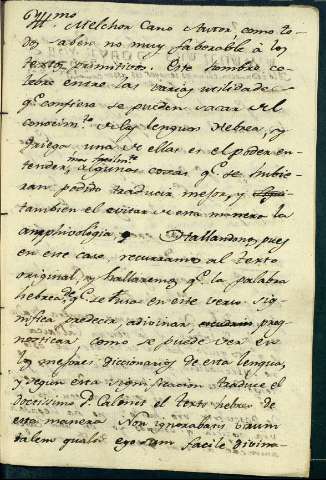 Yllmo Melchor Cano Autor como to-
dos saben no muy faborable à los
textos primitivos. Este hombre ce-
lebre entre las varias utilidades
q.e confiesa se pueden sacar del
conocim.to de las lenguas Hebrea, y
Griega una de ellas es el poder en-
tender, mas facilm.te algunas cosas q.e se hubie-
ran podido traducir mejor, y
tambien el evitar de esta manera la
amphivologia. Hallandonos, pues
en este caso, recurramos al texto
original, y hallaremos q.e la palabra
hebrea, q.e se lusa en este verso sig-
nifica predecir adivinar, preg-
nosticar, como se puede ver en
los mejores diccionarios de esta lengua,
y segun esta significacion traduce el
doctissimo P. Calmet el texto hebreo de
esta manera Non ignorabatis virum
talem qualis ego sum facile divina-